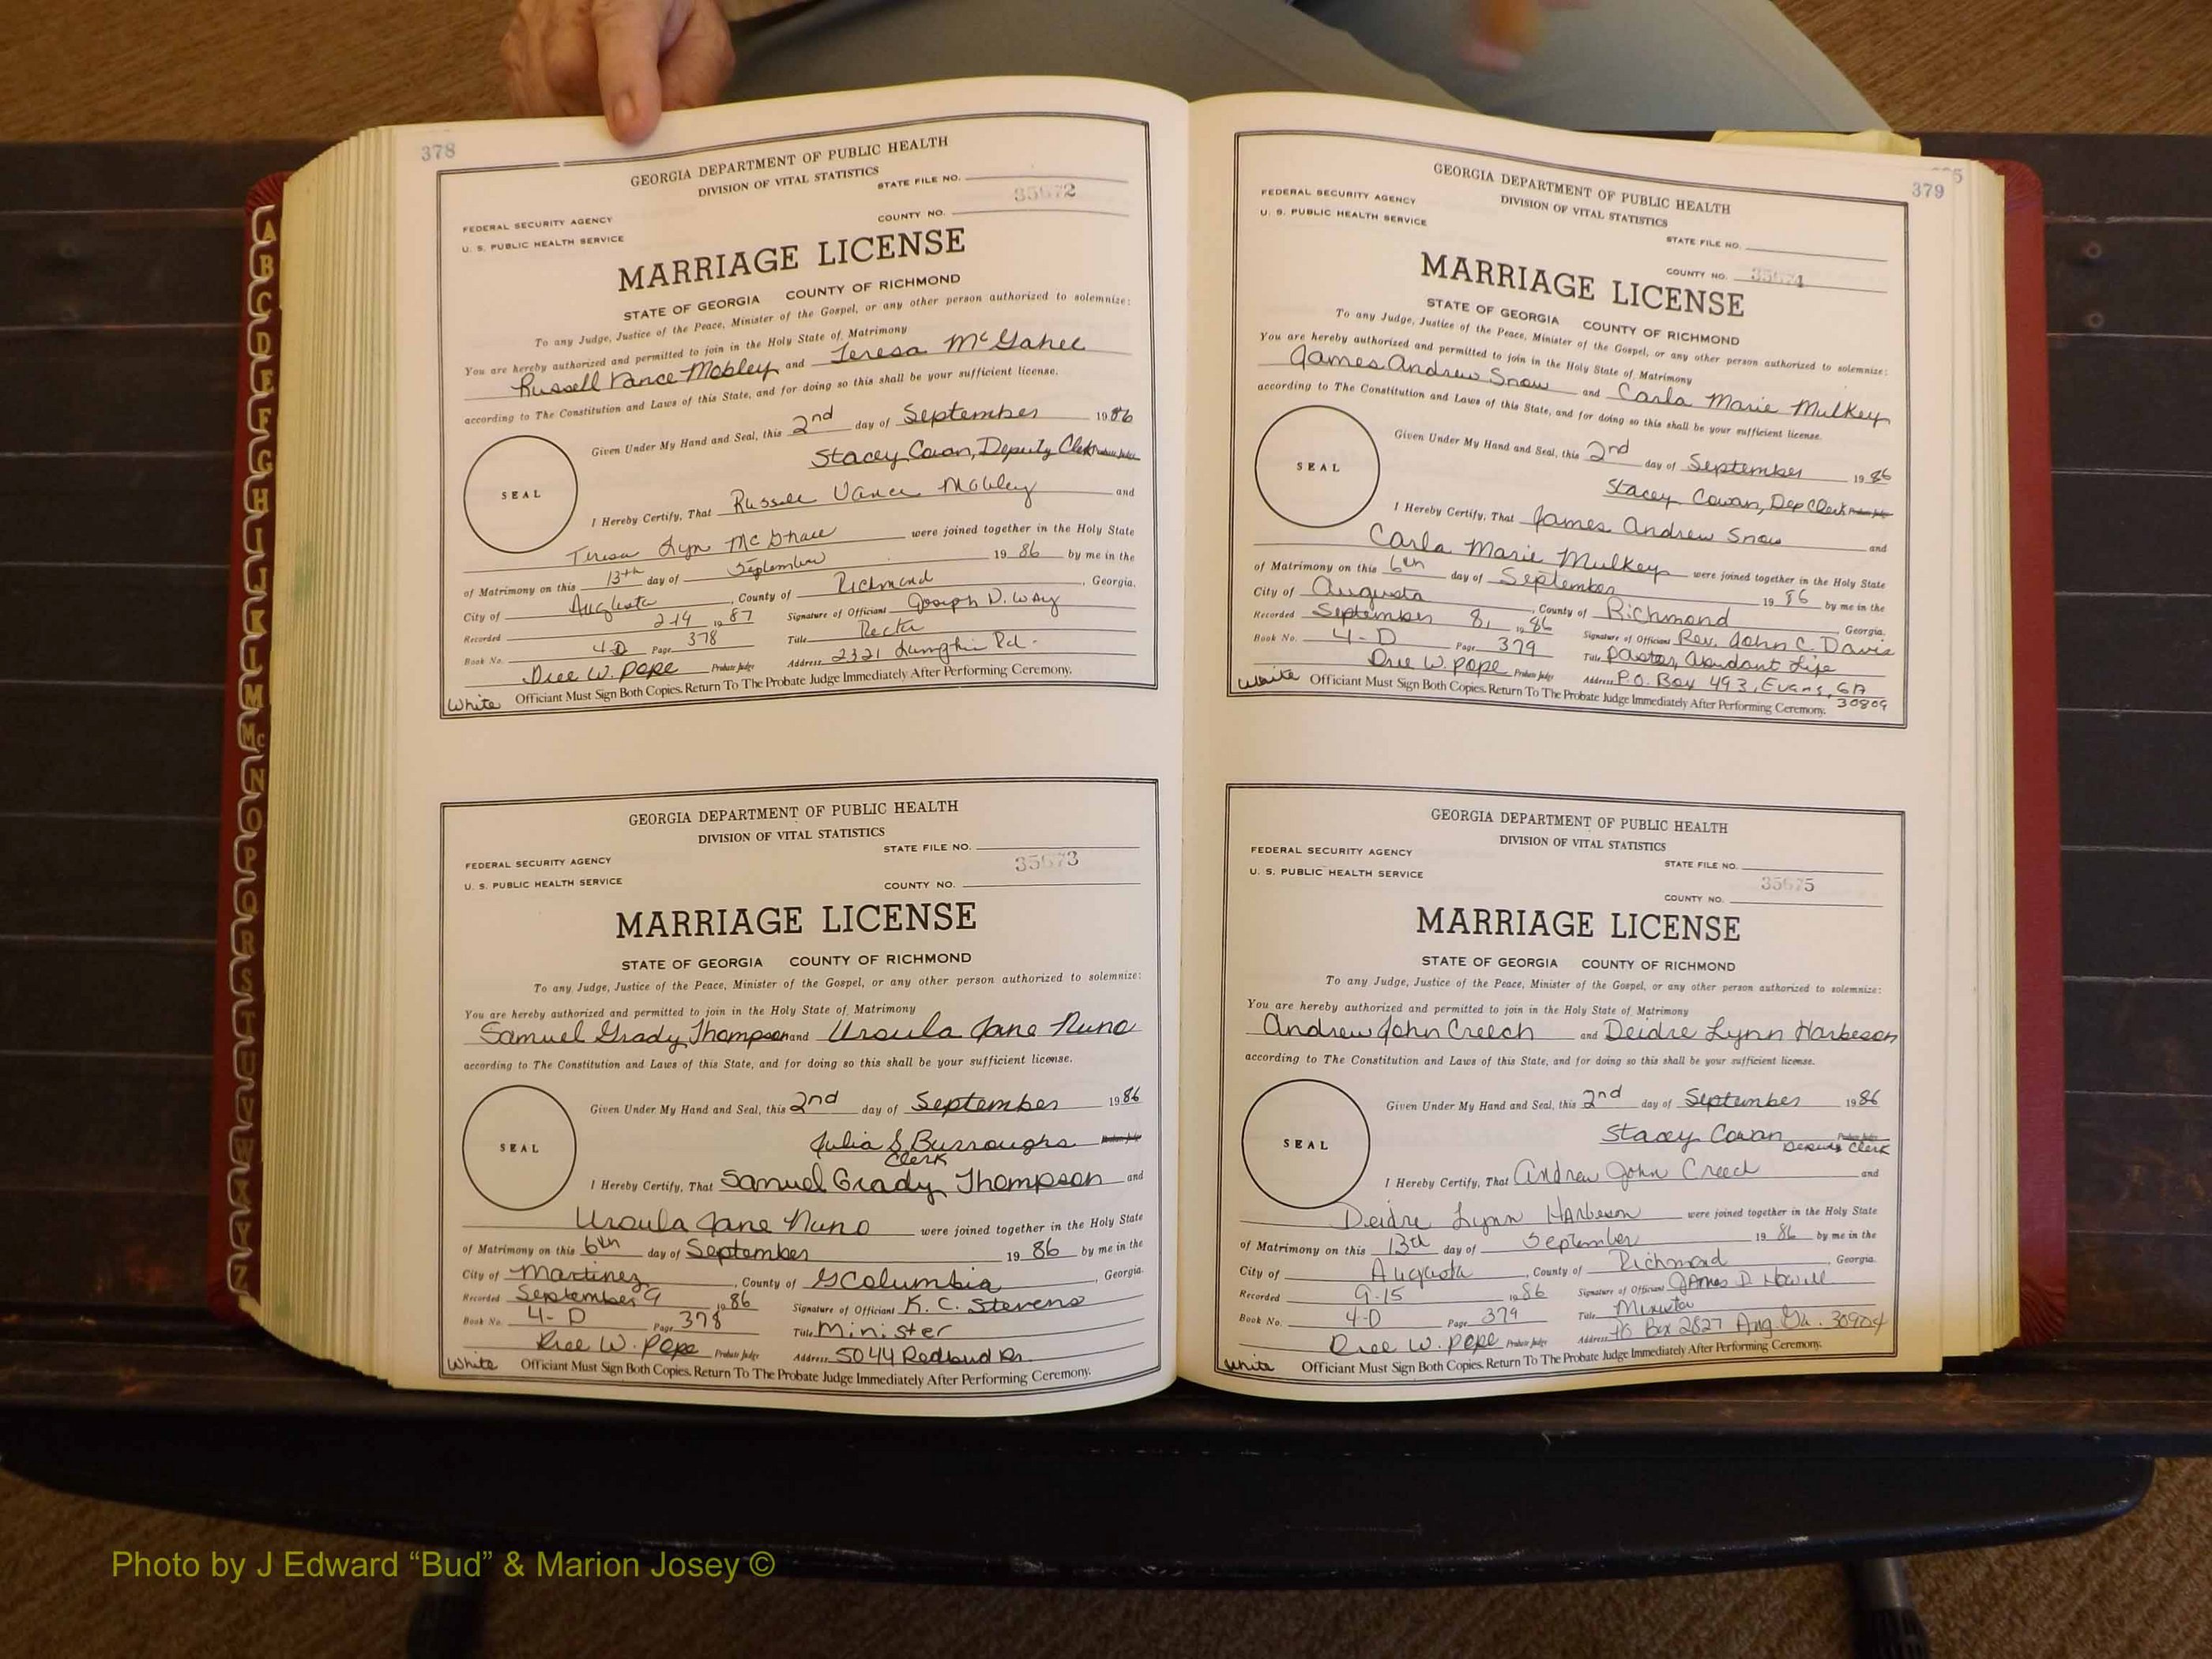 378
GEORGIA DEPARTMENT OF PUBLIC HEALTH
DIVISION OF VITAL STATISTICS
STATE FILE NO.
35672
FEDERAL SECURITY AGENCY
COUNTY NO.
U. S. PUBLIC HEALTH SERVICE
MARRIAGE LICENSE
STATE OF GEORGIA COUNTY OF RICHMOND
To any Judge, Justice of the Peace, Minister of the Gospel, or any other person authorized to solemnize:
You are hereby authorized and permitted to join in the Holy State of Matrimony
Russell Vance Mobley and Teresa McGahee
according to The Constitution and Laws of this State, and for doing so this shall be your sufficient license.
Given Under My Hand and Seal, this 2nd day of September 1986
Stacey Cowan, Deputy Clerk Probate Judge
SEAL
I Hereby Certify, That Russell Vance Mobley and
Teresa Lyn were joined together in the Holy State
of Matrimony on this 13th day of September 1986 by me in the
City of Augusta, County of Richmond, Georgia.
Recorded 2-19 1987 Signature of Officiant Joseph D. Way
Book No. 4-D Page 378 Title
Dree W. Pope Probate Judge Address 2321 Lumpkin Rd.
White Officiant Must Sign Both Copies. Return To The Probate Judge Immediately After Performing Ceremony.
GEORGIA DEPARTMENT OF PUBLIC HEALTH
DIVISION OF VITAL STATISTICS
STATE FILE NO.
35673
FEDERAL SECURITY AGENCY
U. S. PUBLIC HEALTH SERVICE
COUNTY NO.
MARRIAGE LICENSE
STATE OF GEORGIA COUNTY OF RICHMOND
To any Judge, Justice of the Peace, Minister of the Gospel, or any other person authorized to solemnize:
You are hereby authorized and permitted to join in the Holy State of Matrimony
Samuel Grady Thompson and Ursula Jane Nuno
according to The Constitution and Laws of this State, and for doing so this shall be your sufficient license.
Given Under My Hand and Seal, this 2nd day of September 1986
Julia S. Burroughs Probate Judge
Clerk
SEAL
I Hereby Certify, That Samuel Grady Thompson and
Ursula Jane Nuno were joined together in the Holy State
of Matrimony on this 6th day of September 1986 by me in the
City of Martinez, County of Columbia, Georgia.
Recorded September 9 1986 Signature of Officiant K. C. Stevens
Book No. 4-D Page 378 Title Minister
Dree W. Pope Probate Judge Address 5044 Redbud Dr.
White Officiant Must Sign Both Copies. Return To The Probate Judge Immediately After Performing Ceremony.
379
GEORGIA DEPARTMENT OF PUBLIC HEALTH
DIVISION OF VITAL STATISTICS
FEDERAL SECURITY AGENCY
U. S. PUBLIC HEALTH SERVICE
STATE FILE NO.
COUNTY NO. 35674
MARRIAGE LICENSE
STATE OF GEORGIA COUNTY OF RICHMOND
To any Judge, Justice of the Peace, Minister of the Gospel, or any other person authorized to solemnize:
You are hereby authorized and permitted to join in the Holy State of Matrimony
James Andrew Snow and Carla Marie Mulkey
according to The Constitution and Laws of this State, and for doing so this shall be your sufficient license.
Given Under My Hand and Seal, this 2nd day of September 1986
Stacey Cowan, Dep Clerk Probate Judge
SEAL
I Hereby Certify, That James Andrew Snow and
Carla Marie Mulkey were joined together in the Holy State
of Matrimony on this 6th day of September 1986 by me in the
City of Augusta, County of Richmond Georgia.
Recorded September 8, 1986 Signature of Officiant Rev. John C. Davis
Book No. 4-D Page 379 Title Pastor, Abundant Life
Dree W. Pope Probate Judge Address P.O. Box 493, Evans, GA
30809
White Officiant Must Sign Both Copies. Return To The Probate Judge Immediately After Performing Ceremony.
GEORGIA DEPARTMENT OF PUBLIC HEALTH
DIVISION OF VITAL STATISTICS
FEDERAL SECURITY AGENCY
STATE FILE NO.
U. S. PUBLIC HEALTH SERVICE
35675
COUNTY NO.
MARRIAGE LICENSE
STATE OF GEORGIA COUNTY OF RICHMOND
To any Judge, Justice of the Peace, Minister of the Gospel, or any other person authorized to solemnize:
You are hereby authorized and permitted to join in the Holy State of Matrimony
Andrew John Creech and Deidre Lynn Harbeson
according to The Constitution and Laws of this State, and for doing so this shall be your sufficient license.
Given Under My Hand and Seal, this 2nd day of September 1986
Stacey Cowan Probate Judge
Deputy Clerk
SEAL
I Hereby Certify, That Andrew John Creech and
Deidre Lynn Harbeson were joined together in the Holy State
of Matrimony on this 13th day of September 1986 by me in the
City of Augusta, County of Richmond Georgia.
Recorded 9-15 1986 Signature of Officiant James D. Howell
Book No. 4-D Page 379 Title Minister
Dree W. Pope Probate Judge Address PO Box 2827 Aug. Ga. 30904
White Officiant Must Sign Both Copies. Return To The Probate Judge Immediately After Performing Ceremony.
A
B
C
D
E
F
G
H
I
J
K
L
M
Mc
N
O
P
Q
R
S
T
U
V
W
X
Y
Z
Photo by J Edward “Bud” & Marion Josey ©